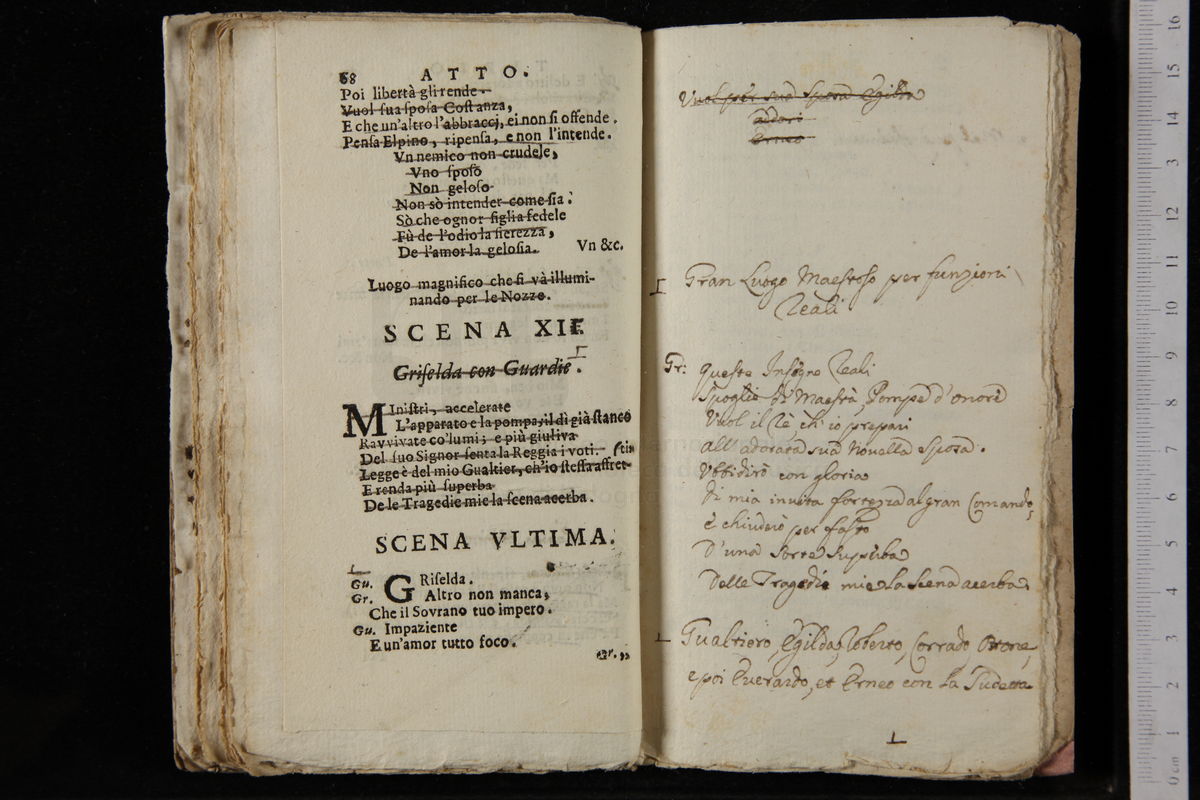 68 ATTO.
Poi libertà gli rende.
Vuol sua sposa Costanza,
E che un'altro l'abbracci, ei non si offende.
Pensa Elpino, ripensa, e non l'intende.
Vn nemico non crudele,
Vno sposo
Non geloso
Non sò intender come sia:
Sò che ognor figlia fedele
Fù de l'odio la fierezza,
De l'amor la gelosia. Vn &c.
Luogo magnifico che si và illumi-
nando per le Nozze.
SCENA XII.
Griselda con Guardie.
MInistri, accelerate
L'apparato e la pompa, il dì già stanco
Ravvivate co'lumi; e più giuliva
Del suo Signor senta la Reggia i voti. (tin
Legge è del mio Gualtier, ch'io stessa affret-
E renda più superba
De le Tragedie mie la scena acerba.
SCENA VLTIMA.
Gu. GRiselda.
Gr. Altro non manca,
Che il Sovrano tuo impero.
Gu. Impaziente
E un'amor tutto foco.
Gr.
Vuol per sua sposa Egilda
Erneo
Gran Luogo Maestoso per funzioni
Reali
Gr: Queste Insegne Reali
Spoglie di Maestà, Pompe d'onore
Vuol il Rè, ch'io prepari
all'adorata sua Novella Sposa.
Ubbidirò con gloria
di mia invita fortezza al gran Comando,
è chiuderò per fasto
D'una sorte superba
Delle Tragedie mie la scena acerba.
Gualtiero, Egilda, Roberto, Corrado Ottone,
e poi Everardo, et Erneo con la Sudetta